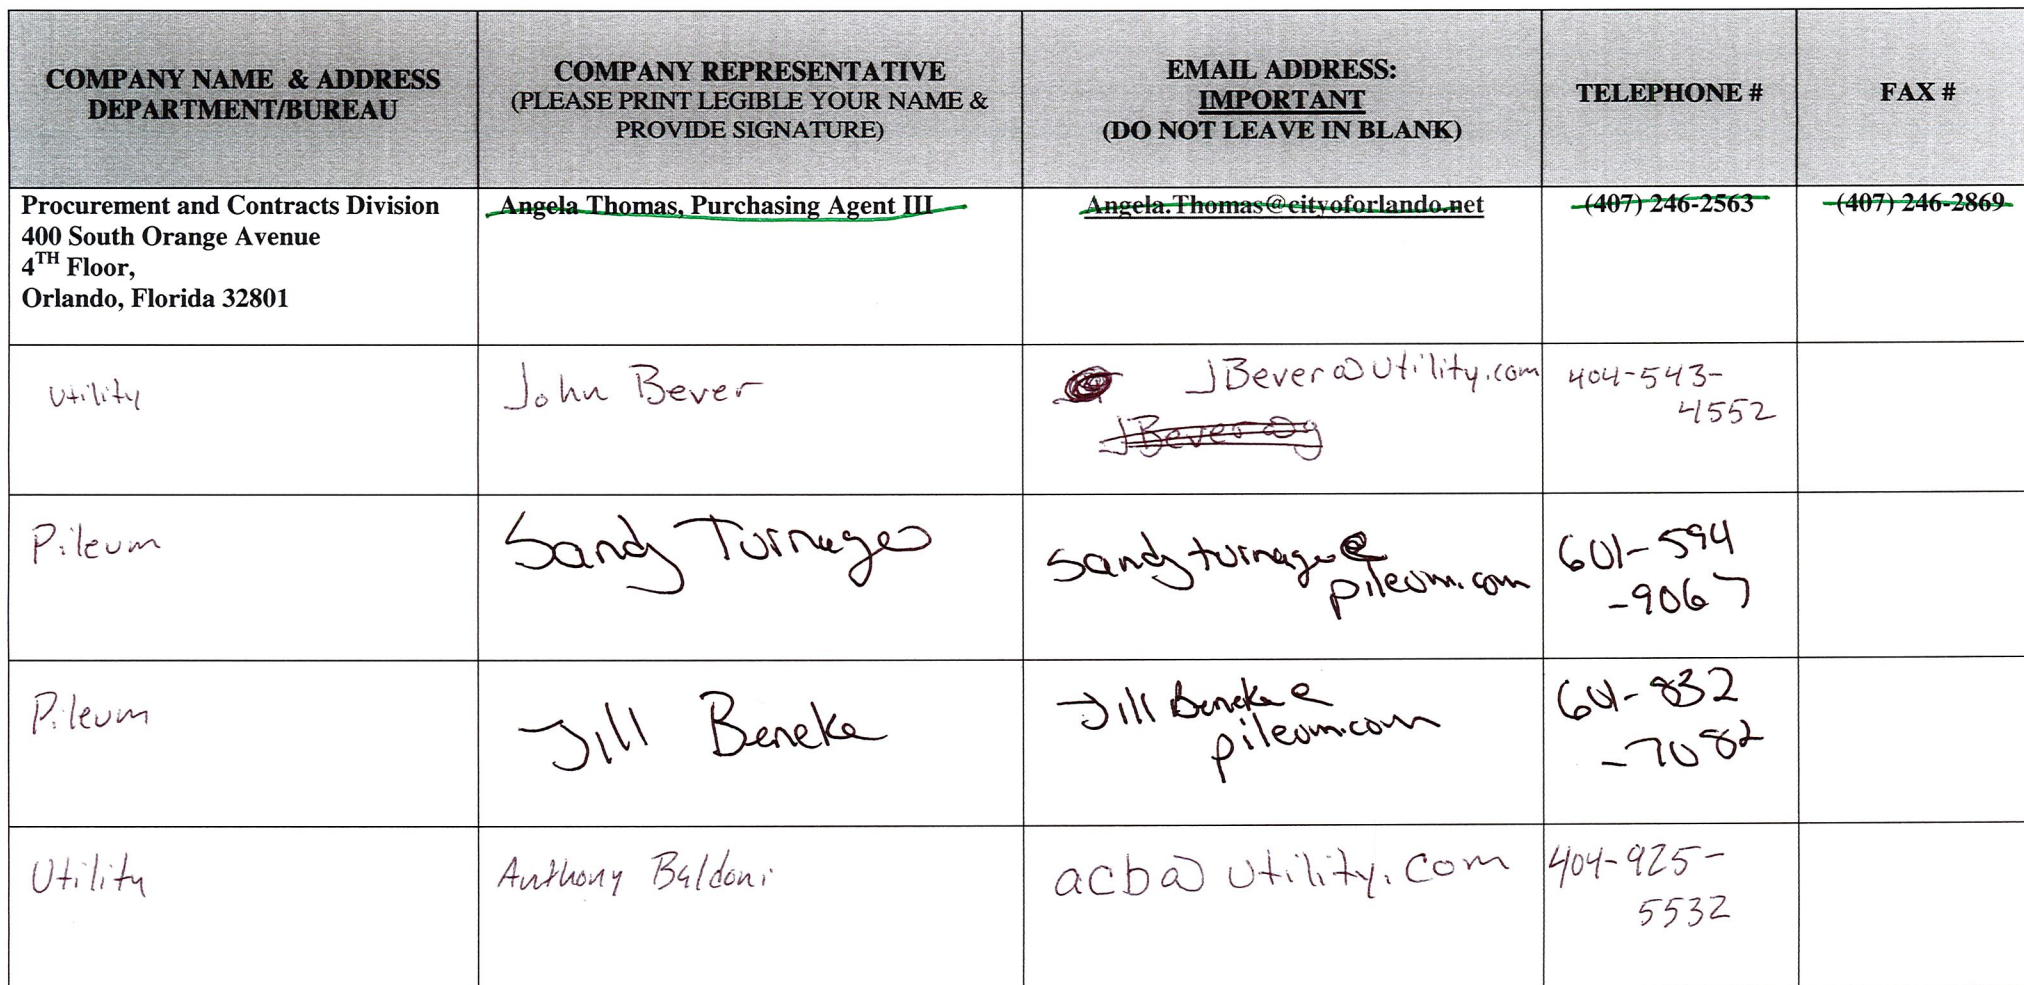 COMPANY NAME & ADDRESS
DEPARTMENT/BUREAU
COMPANY REPRESENTATIVE
(PLEASE PRINT LEGIBLE YOUR NAME &
PROVIDE SIGNATURE)
EMAIL ADDRESS:
IMPORTANT
(DO NOT LEAVE IN BLANK)
TELEPHONE #
FAX #
Procurement and Contracts Division
400 South Orange Avenue
4TH Floor,
Orlando, Florida 32801
Angela Thomas, Purchasing Agent III
Angela.Thomas@cityoforlando.net
(407) 246-2563
(407) 246-2869
Utility
John Bever
JBever@Utility.com
JBever@g
404-543-
4552
Pileum
Sandy Turnage
sandyturnage@
pileum.com
601-594
-9067
Pileum
Jill Beneke
Jill Beneke@
pileum.com
601-832
-7082
Utility
Anthony Baldoni
acb@utility.com
404-925-
5532